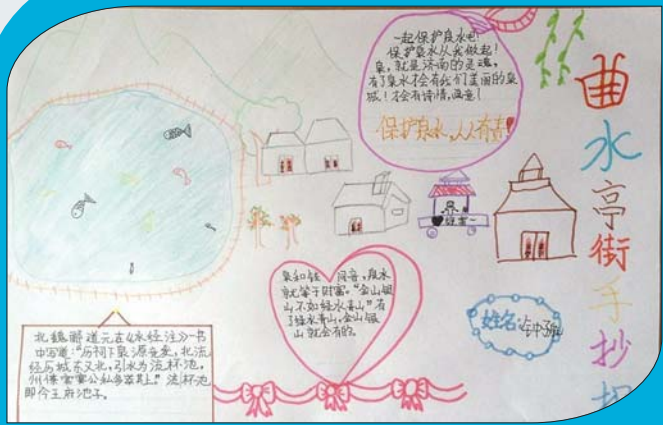 一起保护泉水吧!
保护泉水从我做起!
泉,就是济南的灵魂,
有了泉水才会有我们美丽的泉
城!才会有诗情,画意!
保护泉水,人人有责!
曲水亭街手抄报
泉和钱 同音,泉水
就等于财富。“金山银
山不如绿水青山”有
了绿水青山,金山银
山就会有的。
姓名:
北魏郦道元在《水经注》一书
中写道:“历祠下泉源竞发,北流
经历城东又北,引水为流杯池,
州僚宾宴公私多萃其上。”流杯池
即今王府池子。